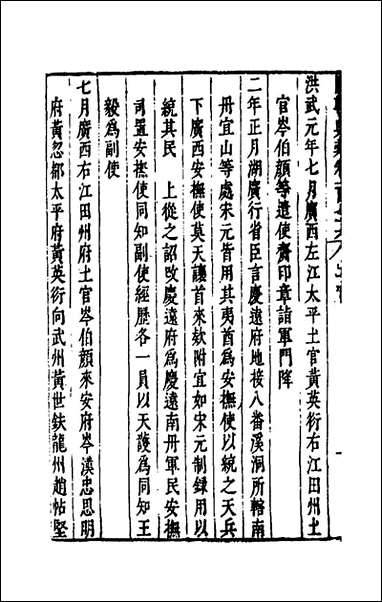 洪武元年七月廣西左江太平土官黃英衍右江田州土
官岑伯顏等遣使賫印章詣軍門降
二年正月湖廣行省臣言慶遠府地接八番溪洞所轄南
丹宜山等處宋元皆用其夷酋為安撫使以統之天兵
下廣西安撫使莫天護首來欵附宜如宋元制録用以
統其民　上從之詔改慶遠府為慶遠南丹軍民安撫
司置安撫使同知副使經歷各一員以天護為同知王
毅為副使
七月廣西右江田州府土官岑伯顏來安府岑漢忠思明
府黃忽都太平府黃英衍向武州黃世鈇龍州趙帖堅